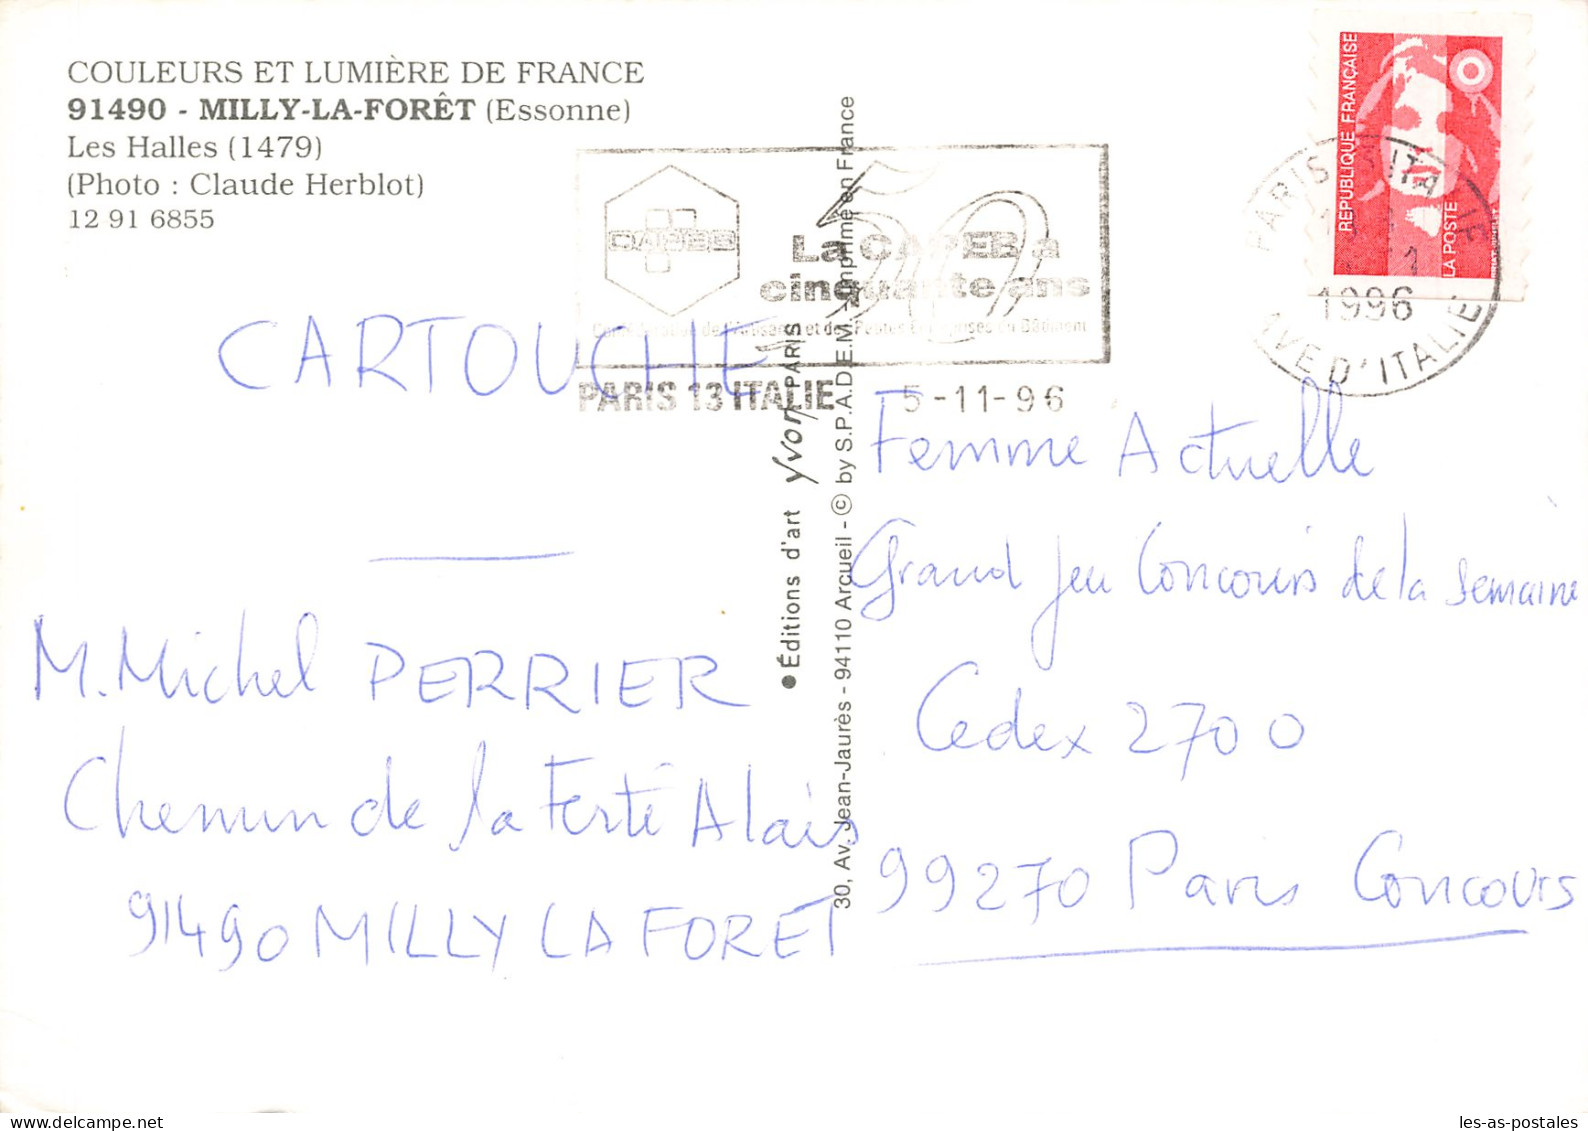 COULEURS ET LUMIÈRE DE FRANCE
91490 - MILLY-LA-FORÊT (Essonne)
Les Halles (1479)
(Photo : Claude Herblot)
12 91 6855
CAPEB
50
La CAPEB a
cinquante ans
Confédération de l'Artisanat et des Petites Entreprises du Bâtiment
PARIS 13 ITALIE 5-11-96
RÉPUBLIQUE FRANÇAISE
LA POSTE
PARIS
1996
AVE D'ITALIE
CARTOUCHE
M. Michel PERRIER
Chemin de la Ferté Alais
91490 MILLY LA FORET
● Éditions d'art yvon PARIS
30, Av. Jean-Jaurès - 94110 Arcueil - © by S.P.A.D.E.M. - Imprimé en France
Femme Actuelle
Grand Jeu Concours de la Semaine
Cedex 2700
99270 Paris Concours
delcampe.net
les-as-postales